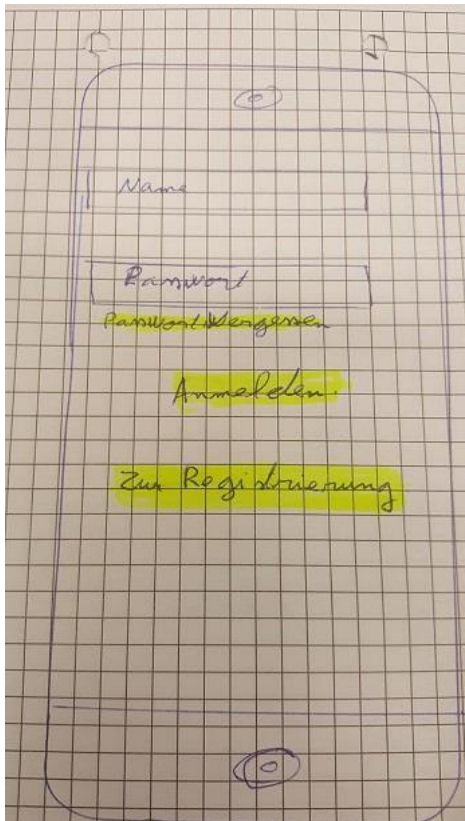 Name
Passwort
Passwort Vergessen
Anmelden.
Zur Registrierung